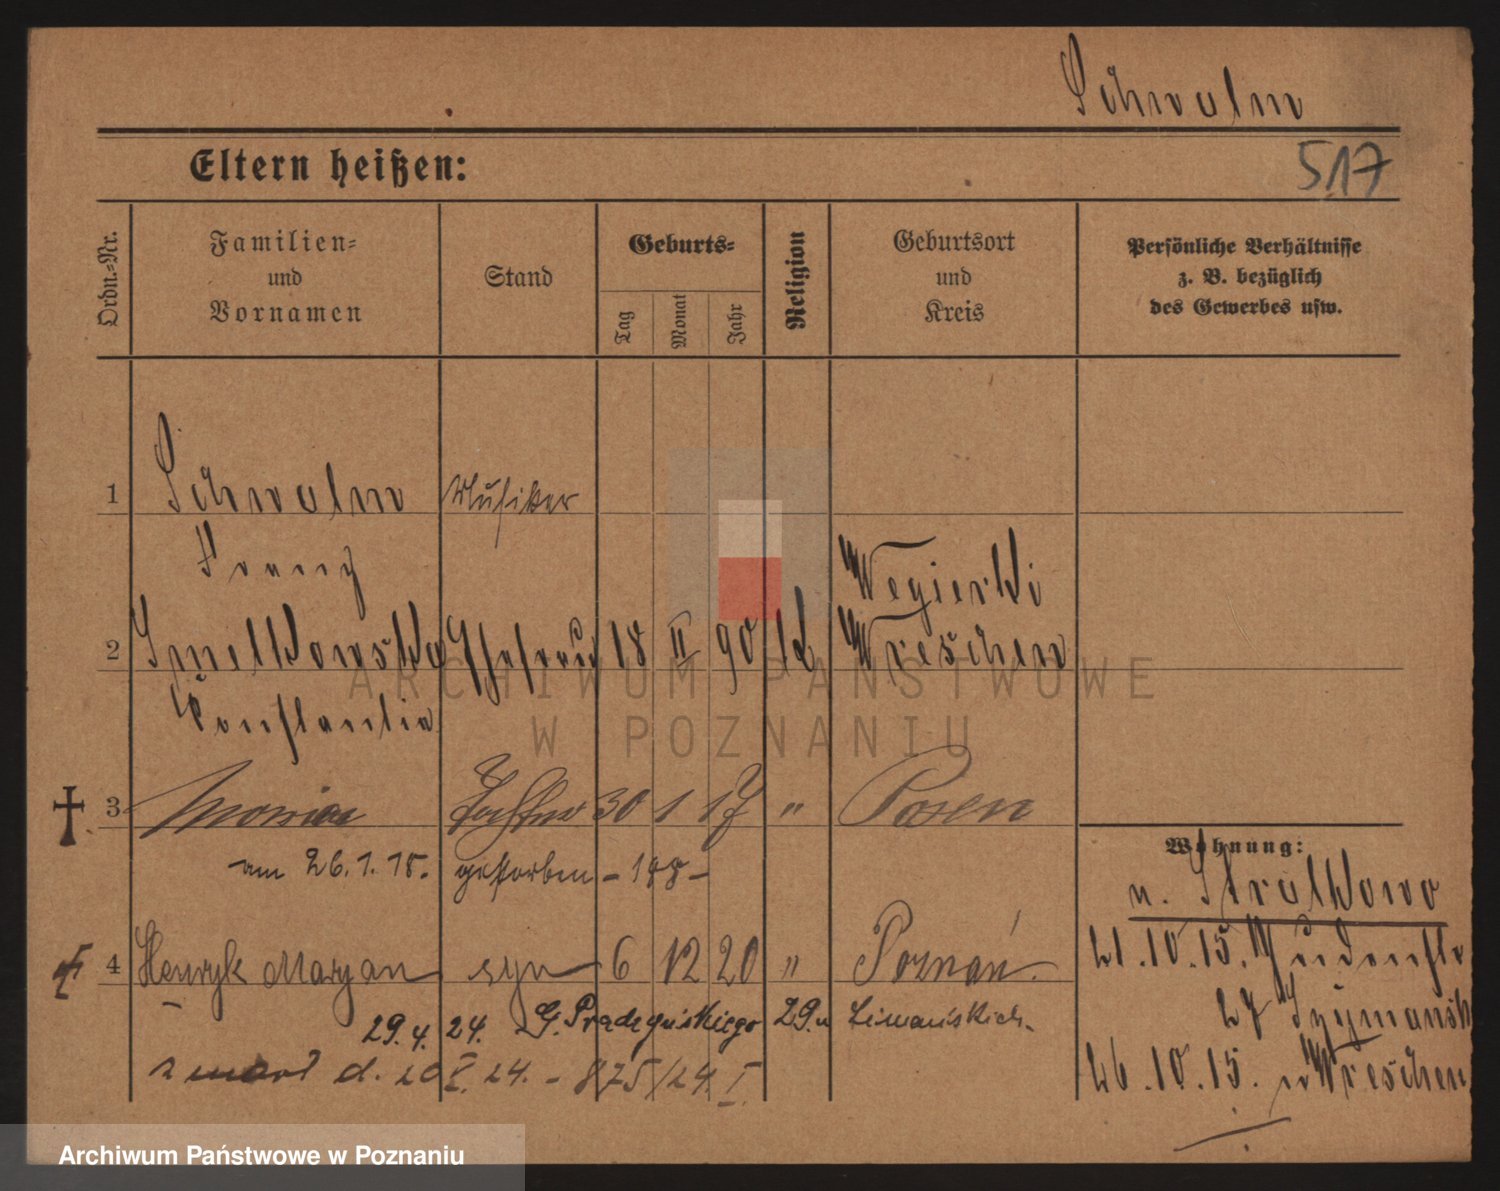 Schwalm
Eltern heißen:
517
Ordn.-Nr.
Familien-
und
Vornamen
Stand
Geburts-
Tag
Monat
Jahr
Religion
Geburtsort
und
Kreis
Persönliche Verhältnisse
z. B. bezüglich
des Gewerbes usw.
1 Schwalm Musiker
Franz
2 Smelkowska Ehefrau 18 II 90 k Wegierki Wreschen
Constantia
3 Tochter 30 1 17 " Posen
am 26.1.18. gestorben - 188 -
4 Henryk Maryan syn 6 12 20 " Poznań.
29.4.24. G. Prądzyńskiego 29.
zmarł d. 20 X. 24. - 875/24 I
Wohnung:
n. Stralkowo
21.10.15.
27 Szymansk
26.10.15. n Wreschen
ARCHIWUM PAŃSTWOWE
W POZNANIU
Archiwum Państwowe w Poznaniu